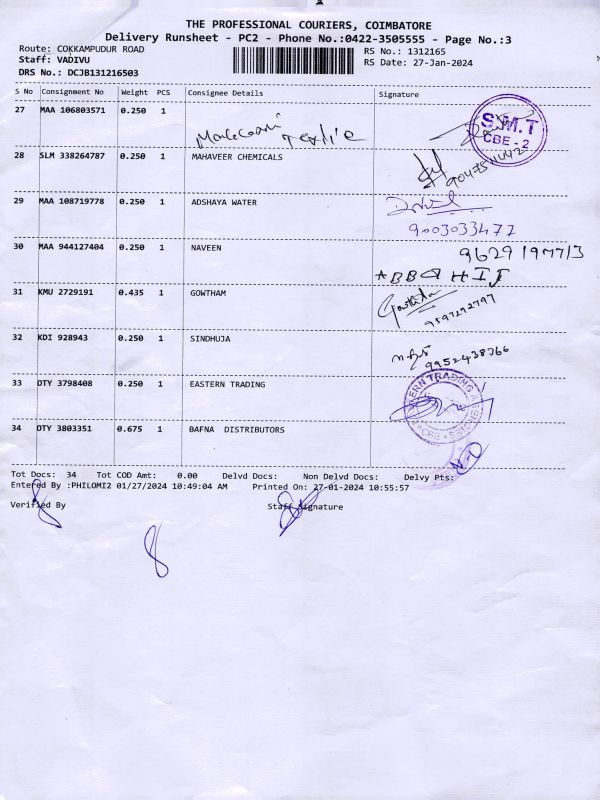 THE PROFESSIONAL COURIERS, COIMBATORE
Delivery Runsheet - PC2 - Phone No.:0422-3505555 - Page No.:3
Route: COKKAMPUDUR ROAD
RS No.: 1312165
Staff: VADIVU
RS Date: 27-Jan-2024
DRS No.: DCJB131216503
S No Consignment No Weight PCS Consignee Details Signature
27 MAA 106803571 0.250 1
S.M.T
CBE - 2
28 SLM 338264787 0.250 1 MAHAVEER CHEMICALS
29 MAA 108719778 0.250 1 ADSHAYA WATER
9003033477
30 MAA 944127404 0.250 1 NAVEEN
9629197713
31 KMU 2729191 0.435 1 GOWTHAM
Gowtham
9597272797
32 KDI 928943 0.250 1 SINDHUJA
9952438366
33 OTY 3798408 0.250 1 EASTERN TRADING
34 OTY 3803351 0.675 1 BAFNA DISTRIBUTORS
Tot Docs: 34 Tot COD Amt: 0.00 Delvd Docs: Non Delvd Docs: Delvy Pts:
Entered By :PHILOMI2 01/27/2024 10:49:04 AM Printed On: 27-01-2024 10:55:57
Verified By Staff Signature